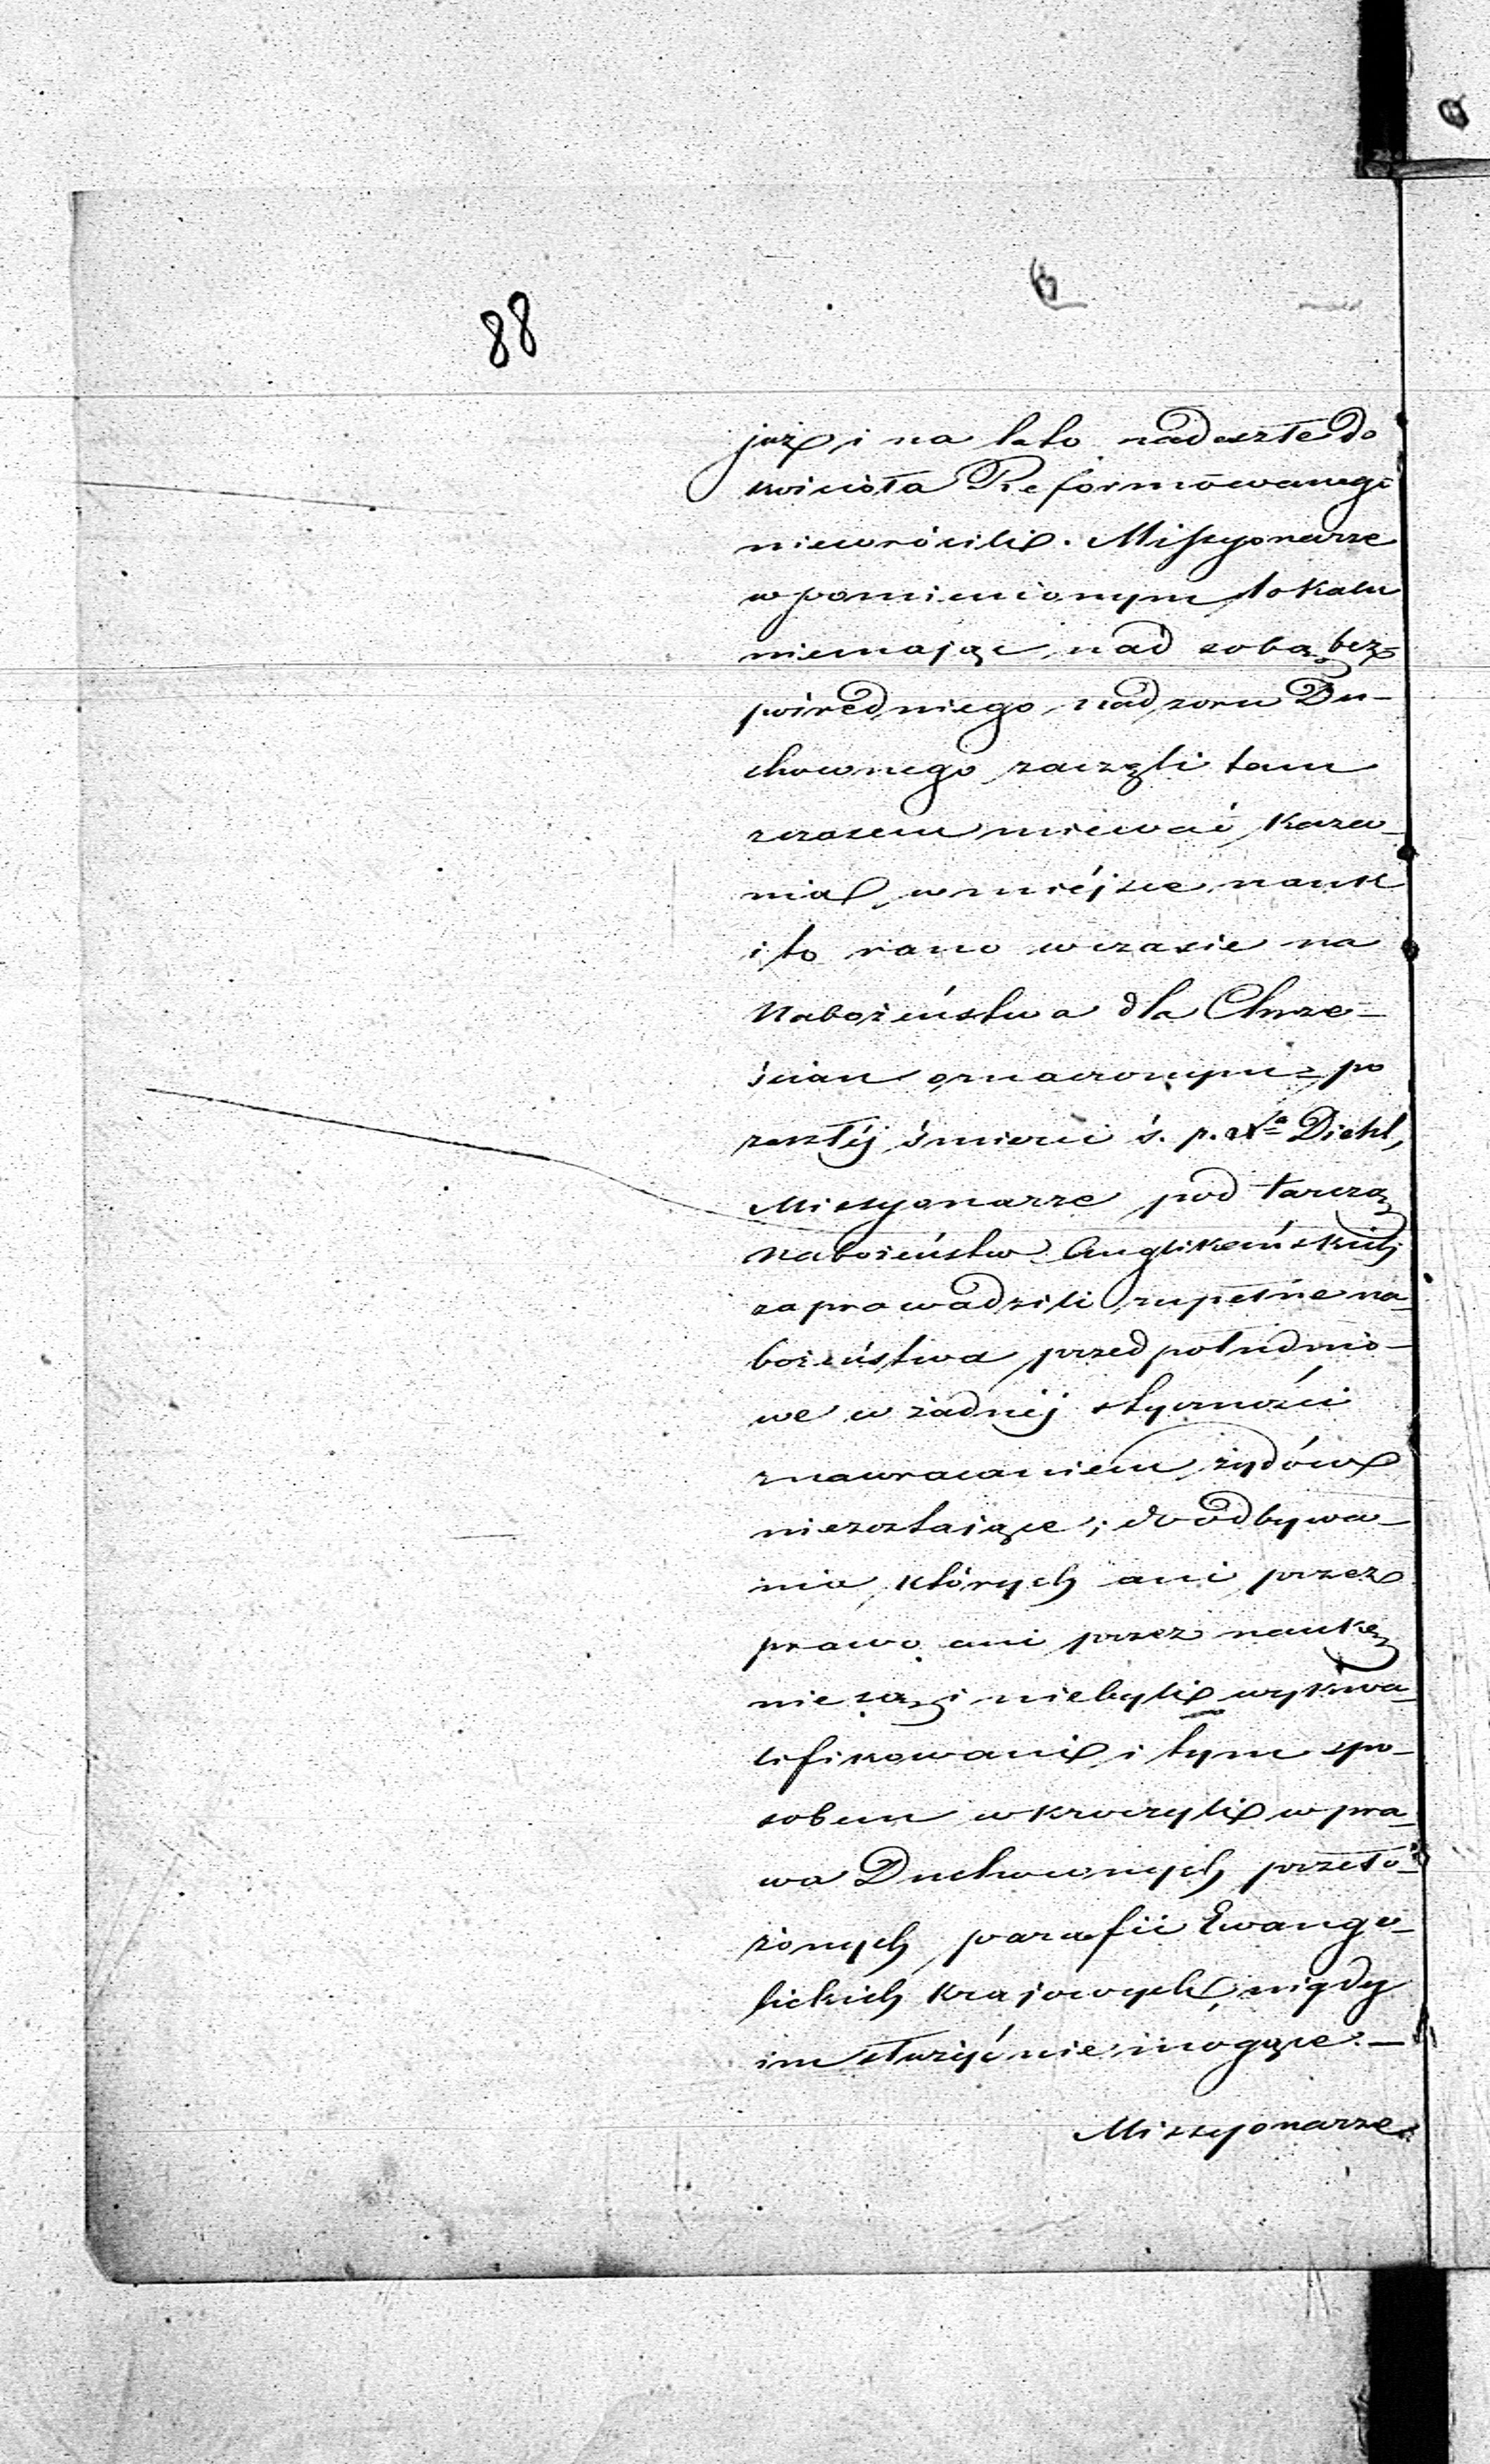 88
już i na lato nadeszłe do
kościoła Reformowanego
niewrócili. Missyonarze
w pomienionym lokalu
niemając nad sobą bez-
pośredniego nadzoru Du-
chownego zaczęli tam
czasem miewać kaza-
nia, w miéjsce nauk
i to rano w czasie na
Nabożeństwa dla Chrze-
ścian oznaczonym = po
zeszłéj śmierci ś. p. Xa Diehl,
Missyonarze pod tarczą
Nabożeństw Anglikańskich
zaprowadzili zupełne na-
bożeństwa przedpołudnio-
we w żadnéj styczności
z nawracaniem żydów
niezostające; do odbywa-
nia których ani przez
prawo ani przez naukę
nie są i niebyli wykwa-
lifikowani i tym spo-
sobem wkroczyli w pra-
wa Duchownych przeło-
żonych parafii Ewange-
lickich krajowych, nigdy
im służyć nie mogące. —
Missyonarze